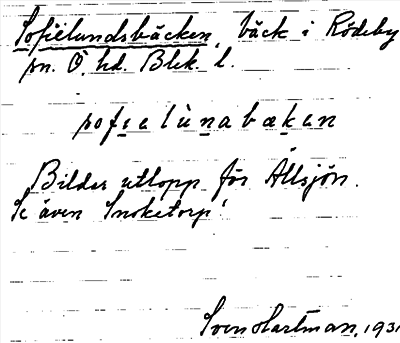 Sofielundsbäcken, bäck i Rödeby
sn. Ö. hd. Blek. l.
sofielùnabækan
Bildar utlopp för Allsjön.
Se även Snoketorp!
Sven Hartman, 1931